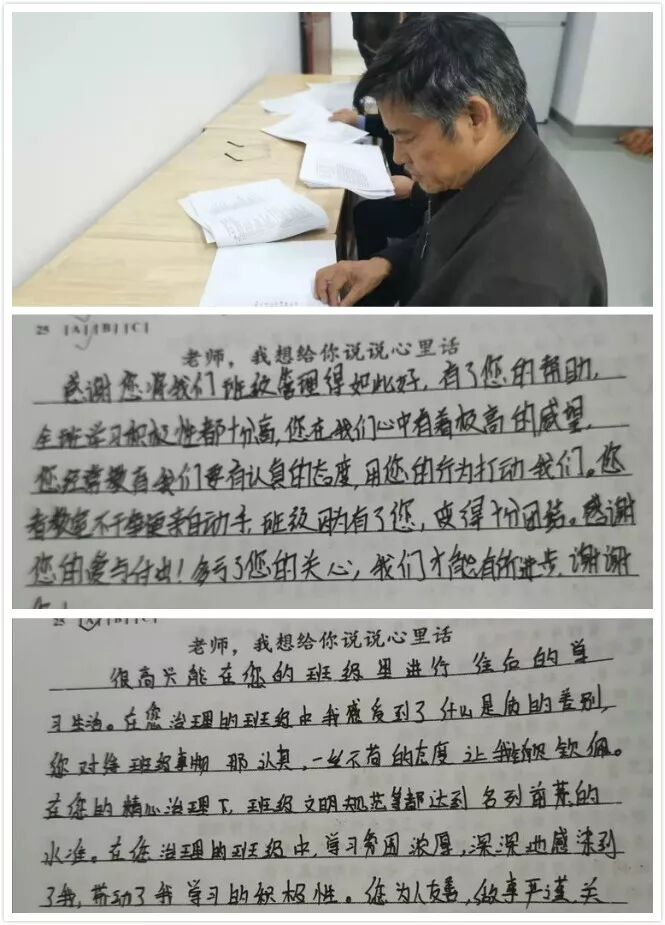 25 [A][B][C]
老师，我想给你说说心里话
感谢您将我们班级管理得如此好，有了您的帮助，
全班学习积极性都十分高，您在我们心中有着极高的威望，
您经常教育我们要有认真的态度，用您的行为打动我们。您
看教室不干净更亲自动手，班级因为有了您，变得十分团结。感谢
您的爱与付出！多亏了您的关心，我们才能有所进步，谢谢
25 [A][B][C]
老师，我想给你说说心里话
很高兴能在您的班级里进行往后的学
习生活。在您治理的班级中我感受到了什么是质的差别，
您对待班级事物那认真，一丝不苟的态度让我钦佩。
在您的精心治理下，班级文明规范等都达到名列前茅的
水准。在您治理的班级中，学习氛围浓厚，深深地感染到
了我，带动了我学习的积极性。您为人友善，做事严谨，关